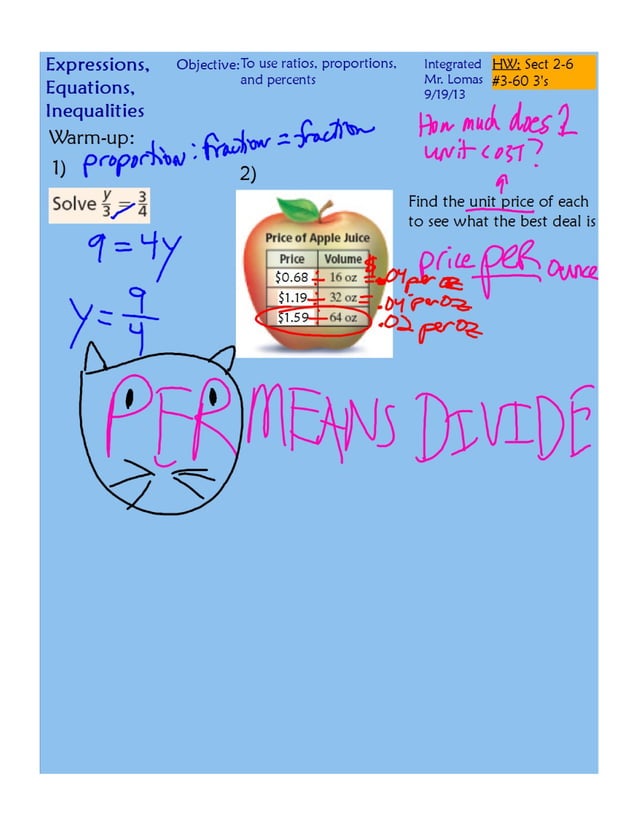 Expressions,
Equations,
Inequalities
Objective: To use ratios, proportions,
and percents
Integrated
Mr. Lomas
9/19/13
HW: Sect 2-6
#3-60 3's
Warm-up:
1) proportion: fraction = fraction
Solve y/3 = 3/4
9 = 4y
y = 9/4
2)
Price of Apple Juice
Price Volume $
$0.68 ÷ 16 oz = .04 per oz
$1.19 ÷ 32 oz = .04 per oz
$1.59 ÷ 64 oz .02 per oz
How much does 1
unit cost?
Find the unit price of each
to see what the best deal is
price PER ounce
PER MEANS DIVIDE